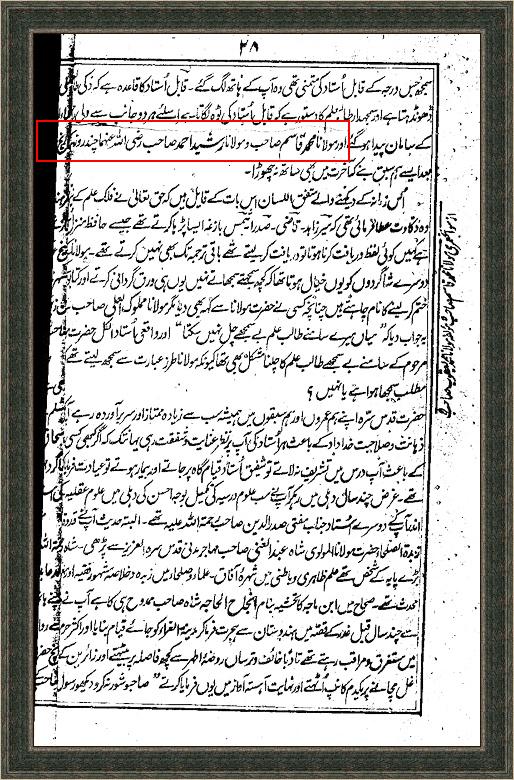 ۲۸
سمجھ جس درجہ کے قابل اُستاد کی متمنی تھی وہ آپ کے ہاتھ لگ گئے۔ قابل اُستاد کا قاعدہ ہے کہ ذکی
ڈھونڈھتا ہے اور سمجھدار طالبعلم کا دستور ہے کہ قابل اُستاد کی ٹوہ لگاتا ہے اسلئے ہر دو جانب سے
کے سامان پیدا ہوگئے اور مولانا محمد قاسم صاحب و مولانا رشید احمد صاحب رضی اللہ عنہما چند روز
بعد ایسے ہم سبق بنے کہ آخرت میں بھی ساتھ نہ چھوڑا۔
اُس زمانہ کے دیکھنے والے متفق اللسان اس بات کے قابل ہیں کہ حق تعالیٰ نے فلک علم کے
وہ ذکاوت عطا فرمائی تھی کہ میر زاہد۔ قاضی۔ صدرا۔ شمس بازغہ ایسا پڑھا کرتے تھے جیسے حافظ
کہیں کوئی لفظ دریافت کرنا ہوتا تو دریافت کر لیتے تھے باقی ترجمہ تک بھی نہیں کرتے تھے۔ مولانا
دوسرے شاگردوں کو یوں خیال ہوتا تھا کہ کچھ سمجھے سمجھائے نہیں یوں ہی ورق گردانی کرتے اور
ختم کر لینے کا نام چاہتے ہیں چنانچہ کسی نے حضرت مولانا سے کہہ بھی دیا مگر مولانا مملوک العلی صاحب نے
یہ جواب دیا کہ "میاں میرے سامنے طالب علم بے سمجھے چل نہیں سکتا" اور واقعی اُستاد الکل حضرت
مرحوم کے سامنے بے سمجھے طالب علم کا چلنا مشکل بھی تھا کیونکہ مولانا طرز عبارت سے سمجھ لیتے تھے
مطلب سمجھا ہوا ہے یا نہیں ؟
حضرت قدس سرہ اپنے ہم عمروں اور ہم سبقوں میں ہمیشہ سب سے زیادہ ممتاز اور سر برآوردہ رہے
ذہانت و صلاحیت خداداد کے باعث ہر اُستاد کی آپ پر نظر عنایت و شفقت رہی یہانتک کہ اگر کبھی کسی
کے باعث آپ درس میں تشریف نہ لاتے تو شفیق اُستاد قیام گاہ پر جاتے اور بیمار ہوتے تو عیادت فرمایا
تھے۔ غرض چند سال دہلی میں رہکر آپنے سب علوم درسیہ کی تکمیل بوجہ احسن کی دہلی میں علوم عقلیہ
آپکے دوسرے اُستاد جناب مفتی صدر الدین صاحب رحمۃ اللہ علیہ تھے۔ البتہ حدیث آپنے قدوۃ
زبدۃ الصلحا حضرت مولانا المولوی شاہ عبد الغنی صاحب مہاجر مدنی قدس سرہ العزیز سے پڑھی۔
بڑے پایہ کے شخص تھے علم ظاہری و باطنی میں شہرۂ آفاق۔ علماء و صلحاء میں زبدہ و خلاصہ مشہور فقیہ اور
محدث تھے۔ صحاح میں ابن ماجہ کا تحشیہ بنام انجاح الحاجہ شاہ صاحب ممدوح ہی کا ہے آپ نے
چند سال قبل غدر کے فتنہ میں ہندوستان سے ہجرت فرما کر مدینۃ القرار کو جائے قیام بنایا اور اکثر
میں مستغرق و مراقب رہتے تھے تادباً خائف و ترساں روضۂ اطہر سے کچھ فاصلہ پر بیٹھتے اور زائرین کے
غل مچانے پر یکدم کانپ اُٹھتے اور نہایت آہستہ آواز میں یوں فرمایا کرتے "صاحبو شور نہ کرو دیکھو رسول